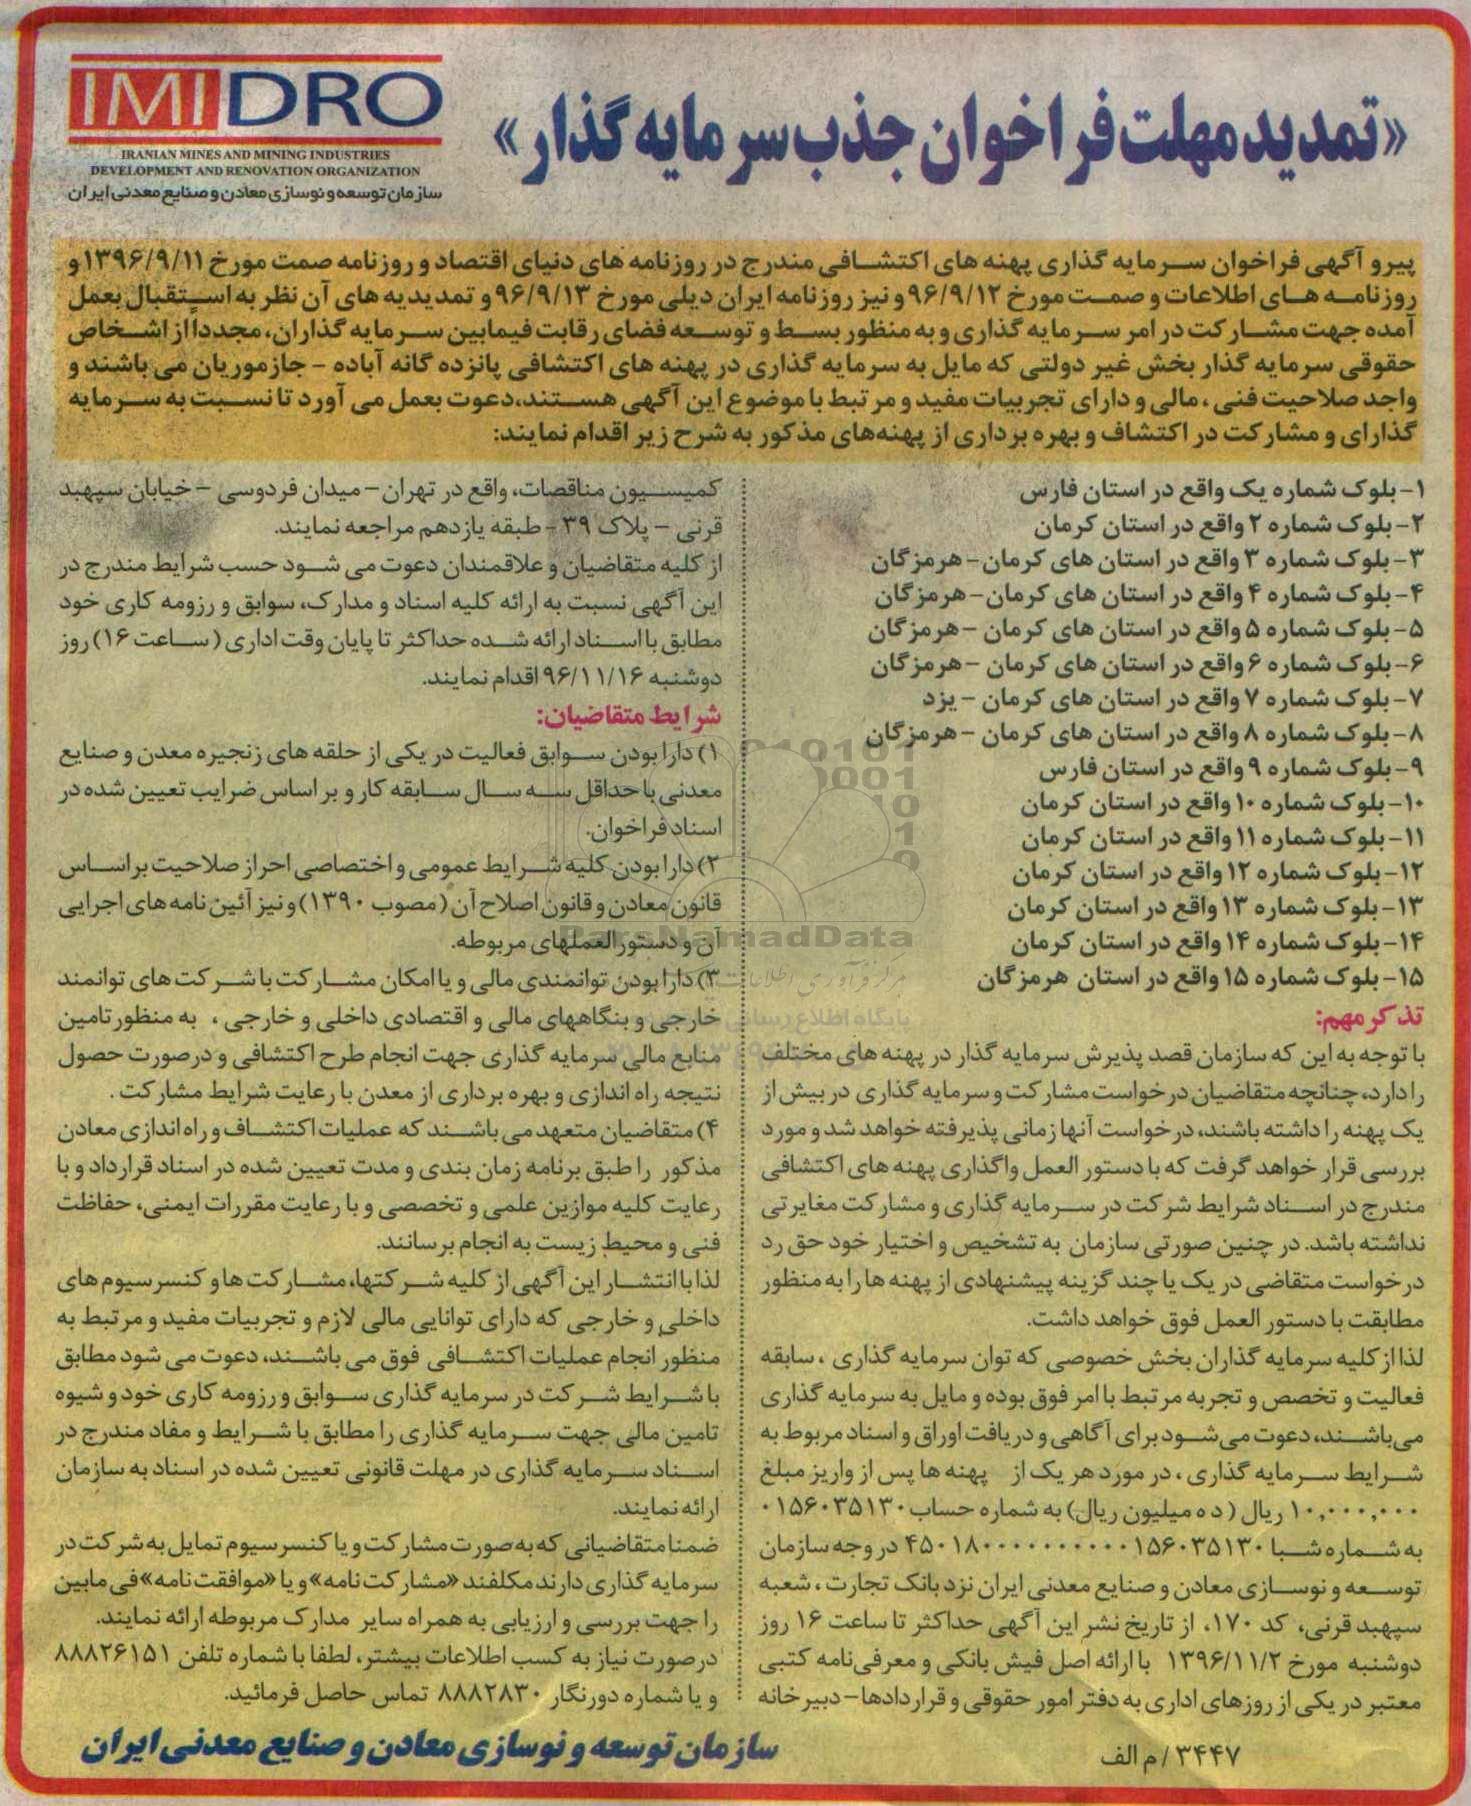 «تمدید مهلت فراخوان جذب سرمایه گذار»
IMIDRO
IRANIAN MINES AND MINING INDUSTRIES
DEVELOPMENT AND RENOVATION ORGANIZATION
سازمان توسعه و نوسازی معادن و صنایع معدنی ایران
پیرو آگهی فراخوان سرمایه گذاری پهنه های اکتشافی مندرج در روزنامه های دنیای اقتصاد و روزنامه صمت مورخ ۱۳۹۶/۹/۱۱ و
روزنامه های اطلاعات و صمت مورخ ۹۶/۹/۱۲ و نیز روزنامه ایران دیلی مورخ ۹۶/۹/۱۳ و تمدیدیه های آن نظر به استقبال بعمل
آمده جهت مشارکت در امر سرمایه گذاری و به منظور بسط و توسعه فضای رقابت فیمابین سرمایه گذاران، مجدداً از اشخاص
حقوقی سرمایه گذار بخش غیر دولتی که مایل به سرمایه گذاری در پهنه های اکتشافی پانزده گانه آباده - جازموریان می باشند و
واجد صلاحیت فنی ، مالی و دارای تجربیات مفید و مرتبط با موضوع این آگهی هستند، دعوت بعمل می آورد تا نسبت به سرمایه
گذارای و مشارکت در اکتشاف و بهره برداری از پهنه‌های مذکور به شرح زیر اقدام نمایند:
۱- بلوک شماره یک واقع در استان فارس
۲- بلوک شماره ۲ واقع در استان کرمان
۳- بلوک شماره ۳ واقع در استان های کرمان- هرمزگان
۴- بلوک شماره ۴ واقع در استان های کرمان- هرمزگان
۵- بلوک شماره ۵ واقع در استان های کرمان - هرمزگان
۶- بلوک شماره ۶ واقع در استان های کرمان - هرمزگان
۷- بلوک شماره ۷ واقع در استان های کرمان - یزد
۸- بلوک شماره ۸ واقع در استان های کرمان - هرمزگان
۹- بلوک شماره ۹ واقع در استان فارس
۱۰- بلوک شماره ۱۰ واقع در استان کرمان
۱۱- بلوک شماره ۱۱ واقع در استان کرمان
۱۲- بلوک شماره ۱۲ واقع در استان کرمان
۱۳- بلوک شماره ۱۳ واقع در استان کرمان
۱۴- بلوک شماره ۱۴ واقع در استان کرمان
۱۵- بلوک شماره ۱۵ واقع در استان هرمزگان
تذکر مهم:
با توجه به این که سازمان قصد پذیرش سرمایه گذار در پهنه های مختلف
را دارد، چنانچه متقاضیان درخواست مشارکت و سرمایه گذاری در بیش از
یک پهنه را داشته باشند، درخواست آنها زمانی پذیرفته خواهد شد و مورد
بررسی قرار خواهد گرفت که با دستور العمل واگذاری پهنه های اکتشافی
مندرج در اسناد شرایط شرکت در سرمایه گذاری و مشارکت مغایرتی
نداشته باشد. در چنین صورتی سازمان به تشخیص و اختیار خود حق رد
درخواست متقاضی در یک یا چند گزینه پیشنهادی از پهنه ها را به منظور
مطابقت با دستور العمل فوق خواهد داشت.
لذا از کلیه سرمایه گذاران بخش خصوصی که توان سرمایه گذاری ، سابقه
فعالیت و تخصص و تجربه مرتبط با امر فوق بوده و مایل به سرمایه گذاری
می‌باشند، دعوت می‌شود برای آگاهی و دریافت اوراق و اسناد مربوط به
شرایط سرمایه گذاری ، در مورد هر یک از پهنه ها پس از واریز مبلغ
۱۰,۰۰۰,۰۰۰ ریال (ده میلیون ریال) به شماره حساب ۰۱۵۶۰۳۵۱۳۰
به شماره شبا ۴۵۰۱۸۰۰۰۰۰۰۰۰۰۰۱۵۶۰۳۵۱۳۰ در وجه سازمان
توسعه و نوسازی معادن و صنایع معدنی ایران نزد بانک تجارت ، شعبه
سپهبد قرنی، کد ۱۷۰، از تاریخ نشر این آگهی حداکثر تا ساعت ۱۶ روز
دوشنبه مورخ ۱۳۹۶/۱۱/۲ با ارائه اصل فیش بانکی و معرفی‌نامه کتبی
معتبر در یکی از روزهای اداری به دفتر امور حقوقی و قراردادها- دبیرخانه
کمیسیون مناقصات، واقع در تهران- میدان فردوسی - خیابان سپهبد
قرنی - پلاک ۳۹ - طبقه یازدهم مراجعه نمایند.
از کلیه متقاضیان و علاقمندان دعوت می شود حسب شرایط مندرج در
این آگهی نسبت به ارائه کلیه اسناد و مدارک، سوابق و رزومه کاری خود
مطابق با اسناد ارائه شده حداکثر تا پایان وقت اداری (ساعت ۱۶) روز
دوشنبه ۹۶/۱۱/۱۶ اقدام نمایند.
شرایط متقاضیان:
۱) دارا بودن سوابق فعالیت در یکی از حلقه های زنجیره معدن و صنایع
معدنی با حداقل سه سال سابقه کار و بر اساس ضرایب تعیین شده در
اسناد فراخوان.
۲) دارا بودن کلیه شرایط عمومی و اختصاصی احراز صلاحیت بر اساس
قانون معادن و قانون اصلاح آن (مصوب ۱۳۹۰) و نیز آئین نامه های اجرایی
آن و دستورالعملهای مربوطه.
۳) دارا بودن توانمندی مالی و یا امکان مشارکت با شرکت های توانمند
خارجی و بنگاههای مالی و اقتصادی داخلی و خارجی ، به منظور تامین
منابع مالی سرمایه گذاری جهت انجام طرح اکتشافی و درصورت حصول
نتیجه راه اندازی و بهره برداری از معدن با رعایت شرایط مشارکت .
۴) متقاضیان متعهد می باشند که عملیات اکتشاف و راه اندازی معادن
مذکور را طبق برنامه زمان بندی و مدت تعیین شده در اسناد قرارداد و با
رعایت کلیه موازین علمی و تخصصی و با رعایت مقررات ایمنی، حفاظت
فنی و محیط زیست به انجام برسانند.
لذا با انتشار این آگهی از کلیه شرکتها، مشارکت ها و کنسرسیوم های
داخلی و خارجی که دارای توانایی مالی لازم و تجربیات مفید و مرتبط به
منظور انجام عملیات اکتشافی فوق می باشند، دعوت می شود مطابق
با شرایط شرکت در سرمایه گذاری سوابق و رزومه کاری خود و شیوه
تامین مالی جهت سرمایه گذاری را مطابق با شرایط و مفاد مندرج در
اسناد سرمایه گذاری در مهلت قانونی تعیین شده در اسناد به سازمان
ارائه نمایند.
ضمنا متقاضیانی که به صورت مشارکت و یا کنسرسیوم تمایل به شرکت در
سرمایه گذاری دارند مکلفند «مشارکت نامه» و یا «موافقت نامه» فی مابین
را جهت بررسی و ارزیابی به همراه سایر مدارک مربوطه ارائه نمایند.
درصورت نیاز به کسب اطلاعات بیشتر، لطفا با شماره تلفن ۸۸۸۲۶۱۵۱
و یا شماره دورنگار ۸۸۸۲۸۳۰ تماس حاصل فرمائید.
۳۴۴۷ / م الف
سازمان توسعه و نوسازی معادن و صنایع معدنی ایران
ParsNamadData